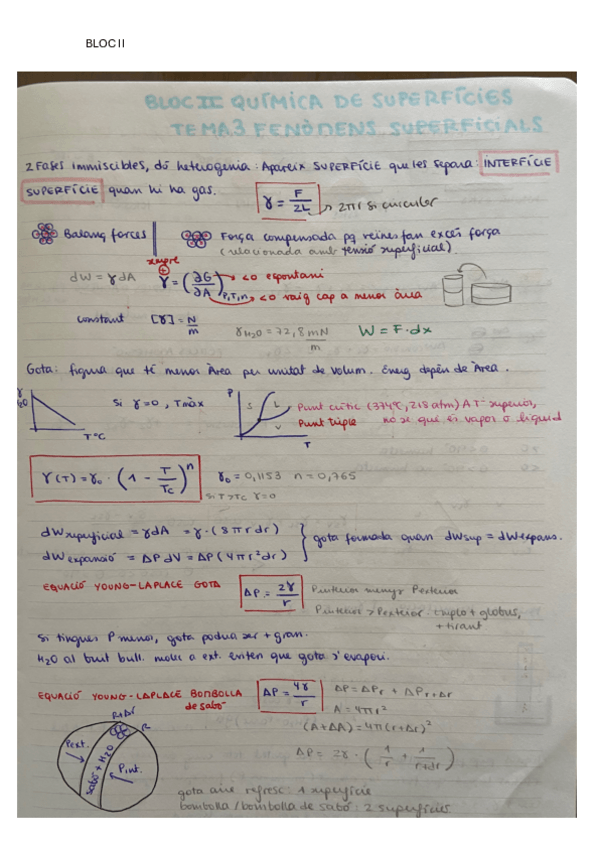 BLOC II
BLOC II QUÍMICA DE SUPERFÍCIES
TEMA 3 FENÒMENS SUPERFICIALS
2 Fases immiscibles, dó heterogenia: Apareix SUPERFÍCIE que les separa: INTERFÍCIE
SUPERFÍCIE quan hi ha gas.
γ = F/2L → 2πr si circular
Balanç forces
Força compensada pq reines fan excés força
(relacionada amb tensió superficial).
xmpre
⊕
dW = γdA
γ = (∂G/∂A)P,T,n
→ <0 espontani
→ <0 vaig cap a menor àrea
constant [γ] = N/m
γH2O = 72,8 mN/m
W = F·dx
Gota: figura que té menor Àrea per unitat de volum. Energ depèn de Àrea.
γ H2O
T ºC
Si γ=0, Tmàx
P
S L V
T
Punt crític (374ºC, 218 atm) A T superior,
Punt triple no se què és vapor o líquid
γ(T) = γ0 · (1 − T/Tc)^n
γ0 = 0,1153 n = 0,765
si T>Tc γ=0
dW superficial = γdA = γ·(8πrdr)
dW expansió = ΔPdV = ΔP(4πr²dr)
gota formada quan dWsup = dWexpans.
EQUACIÓ YOUNG-LAPLACE GOTA
ΔP = 2γ/r
Pinterior menys Pexterior
Pinterior > Pexterior. + globus,
+ tirant
Si tingues P menor, gota podria ser + gran.
H2O al buit bull. molec a ext. eviten que gota s'evapori.
EQUACIÓ YOUNG-LAPLACE BOMBOLLA
de sabó
ΔP = 4γ/r
ΔP = ΔPr + ΔPr+Δr
A = 4πr²
(A+ΔA) = 4π(r+Δr)²
ΔP = 2γ · (1/r + 1/r+dr)
R+Δr
R
Pext.
sabó + H2O
Pint.
gota aire refresc: 1 superfície
bombolla / bombolla de sabó: 2 superfícies